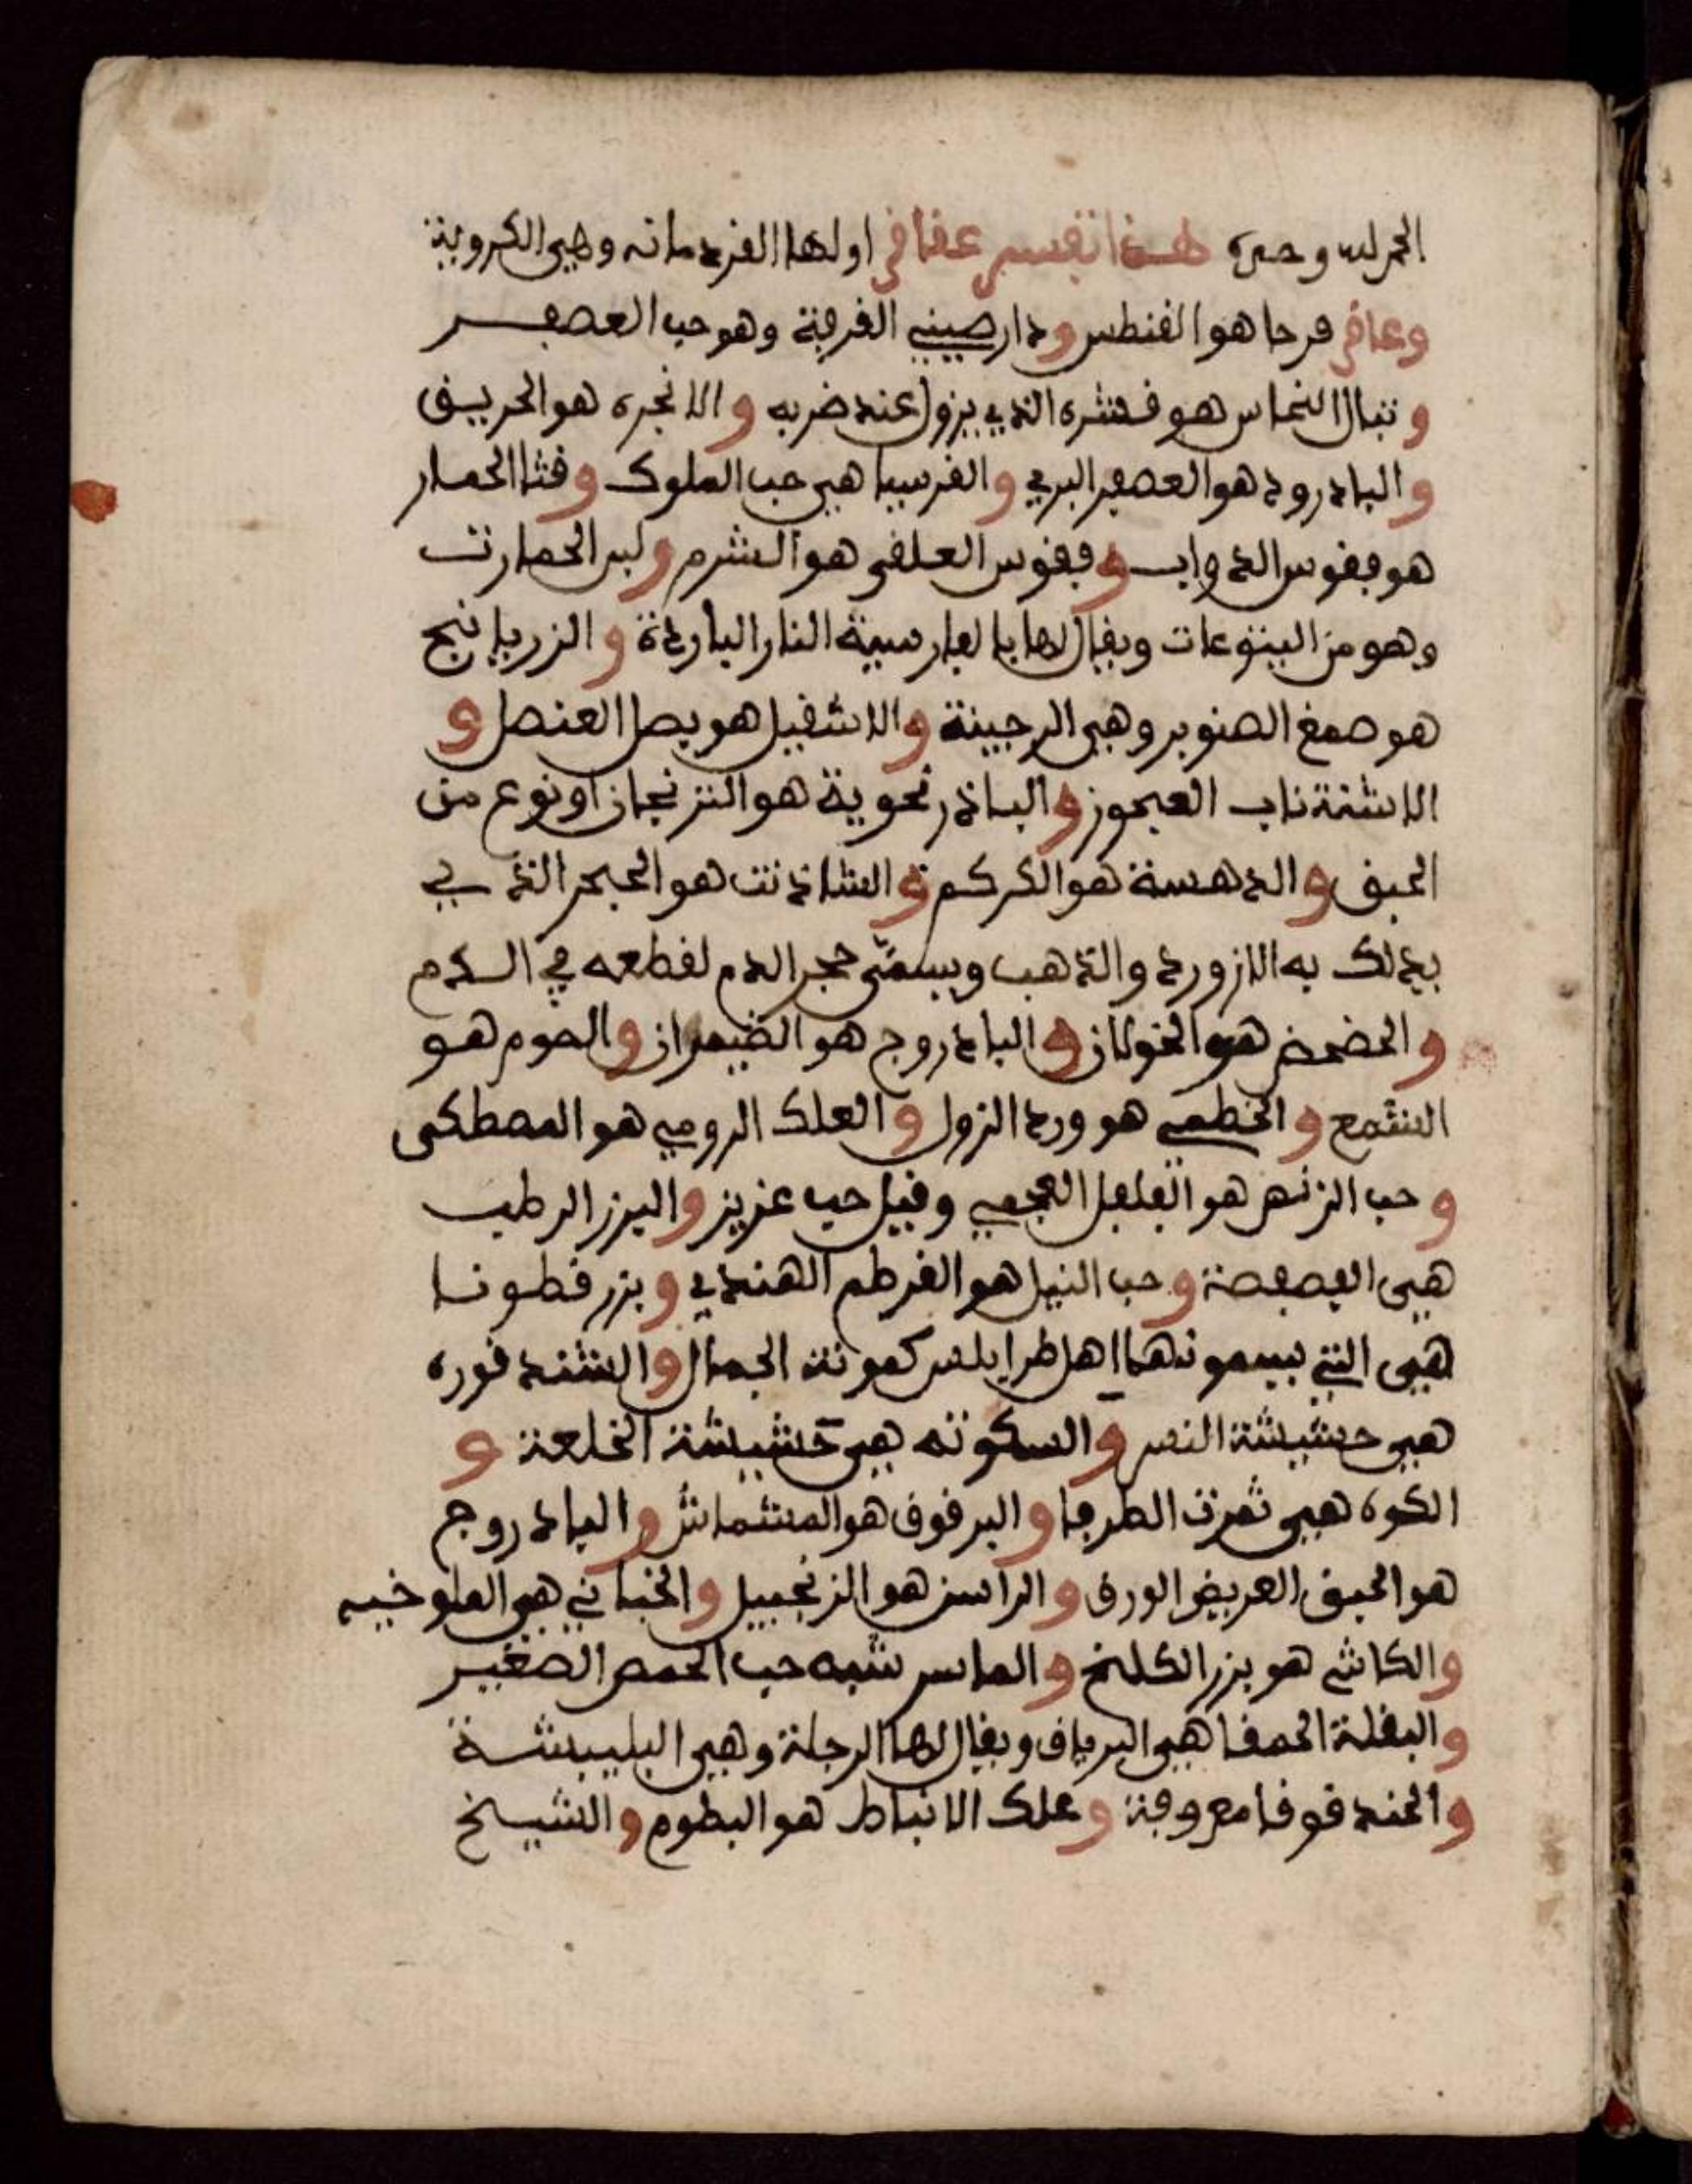 الحمد لله وحده هذا تفسير عقاقر اولها القردمانه وهي الكروية
وعاقر قرحا هو القنطس ودار صيني القرفة وهو حب العصفر
وتبال النحاس هو قشره الذي يزول عند ضربه والانجره هو الحريق
والبادرود هو العصفر البري والقرسيا هي حب الملوك وقثا الحمار
هو فقوس الدواب وفقوس العلقى هو الشرم ولبن الحمارت
وهو من اليتوعات ويقال لها بالفارسية النار الباردة والزريانج
هو صمغ الصنوبر وهي الرجينة والاشقيل هو بصل العنصل و
الاشنة ناب العجوز والباذرنحوية هو الترنجان او نوع من
الحبق والدهسة هو الكركم والشاذنت هو الحجر الذي
يدلك به اللازورد والذهب ويسمى حجر الدم لقطعه في الدم
والحضحض هو الخولان والبادروج هو الضيمران والموم هو
الشمع والخطمي هو ورد الزول والعلك الرومي هو المصطكى
وحب الزنهر هو الفلفل العجمي وقيل حب عزيز والبزر الرطب
هي الفصفصة وحب النيل هو القرطم الهندي وبزر قطونا
هي التي يسمونها اهل طرابلس كمونة الجمال والشندقوره
هي حشيشة النسر والسكوته هي حشيشة الخلعة و
الكوه هي ثمرت الطرفا والبرقوق هو المشماش والبادروج
هو الحبق العريض الورق والراسن هو الزنجبيل والخباني هي الملوخيه
والكاشي هو بزر الكلخ والماس شبه حب الحمص الصغير
والبقلة الحمقا هي البرفاق ويقال لها الرجلة وهي البليبشة
والحندقوقا معروفة وعلك الانباط هو البطوم والشيخ